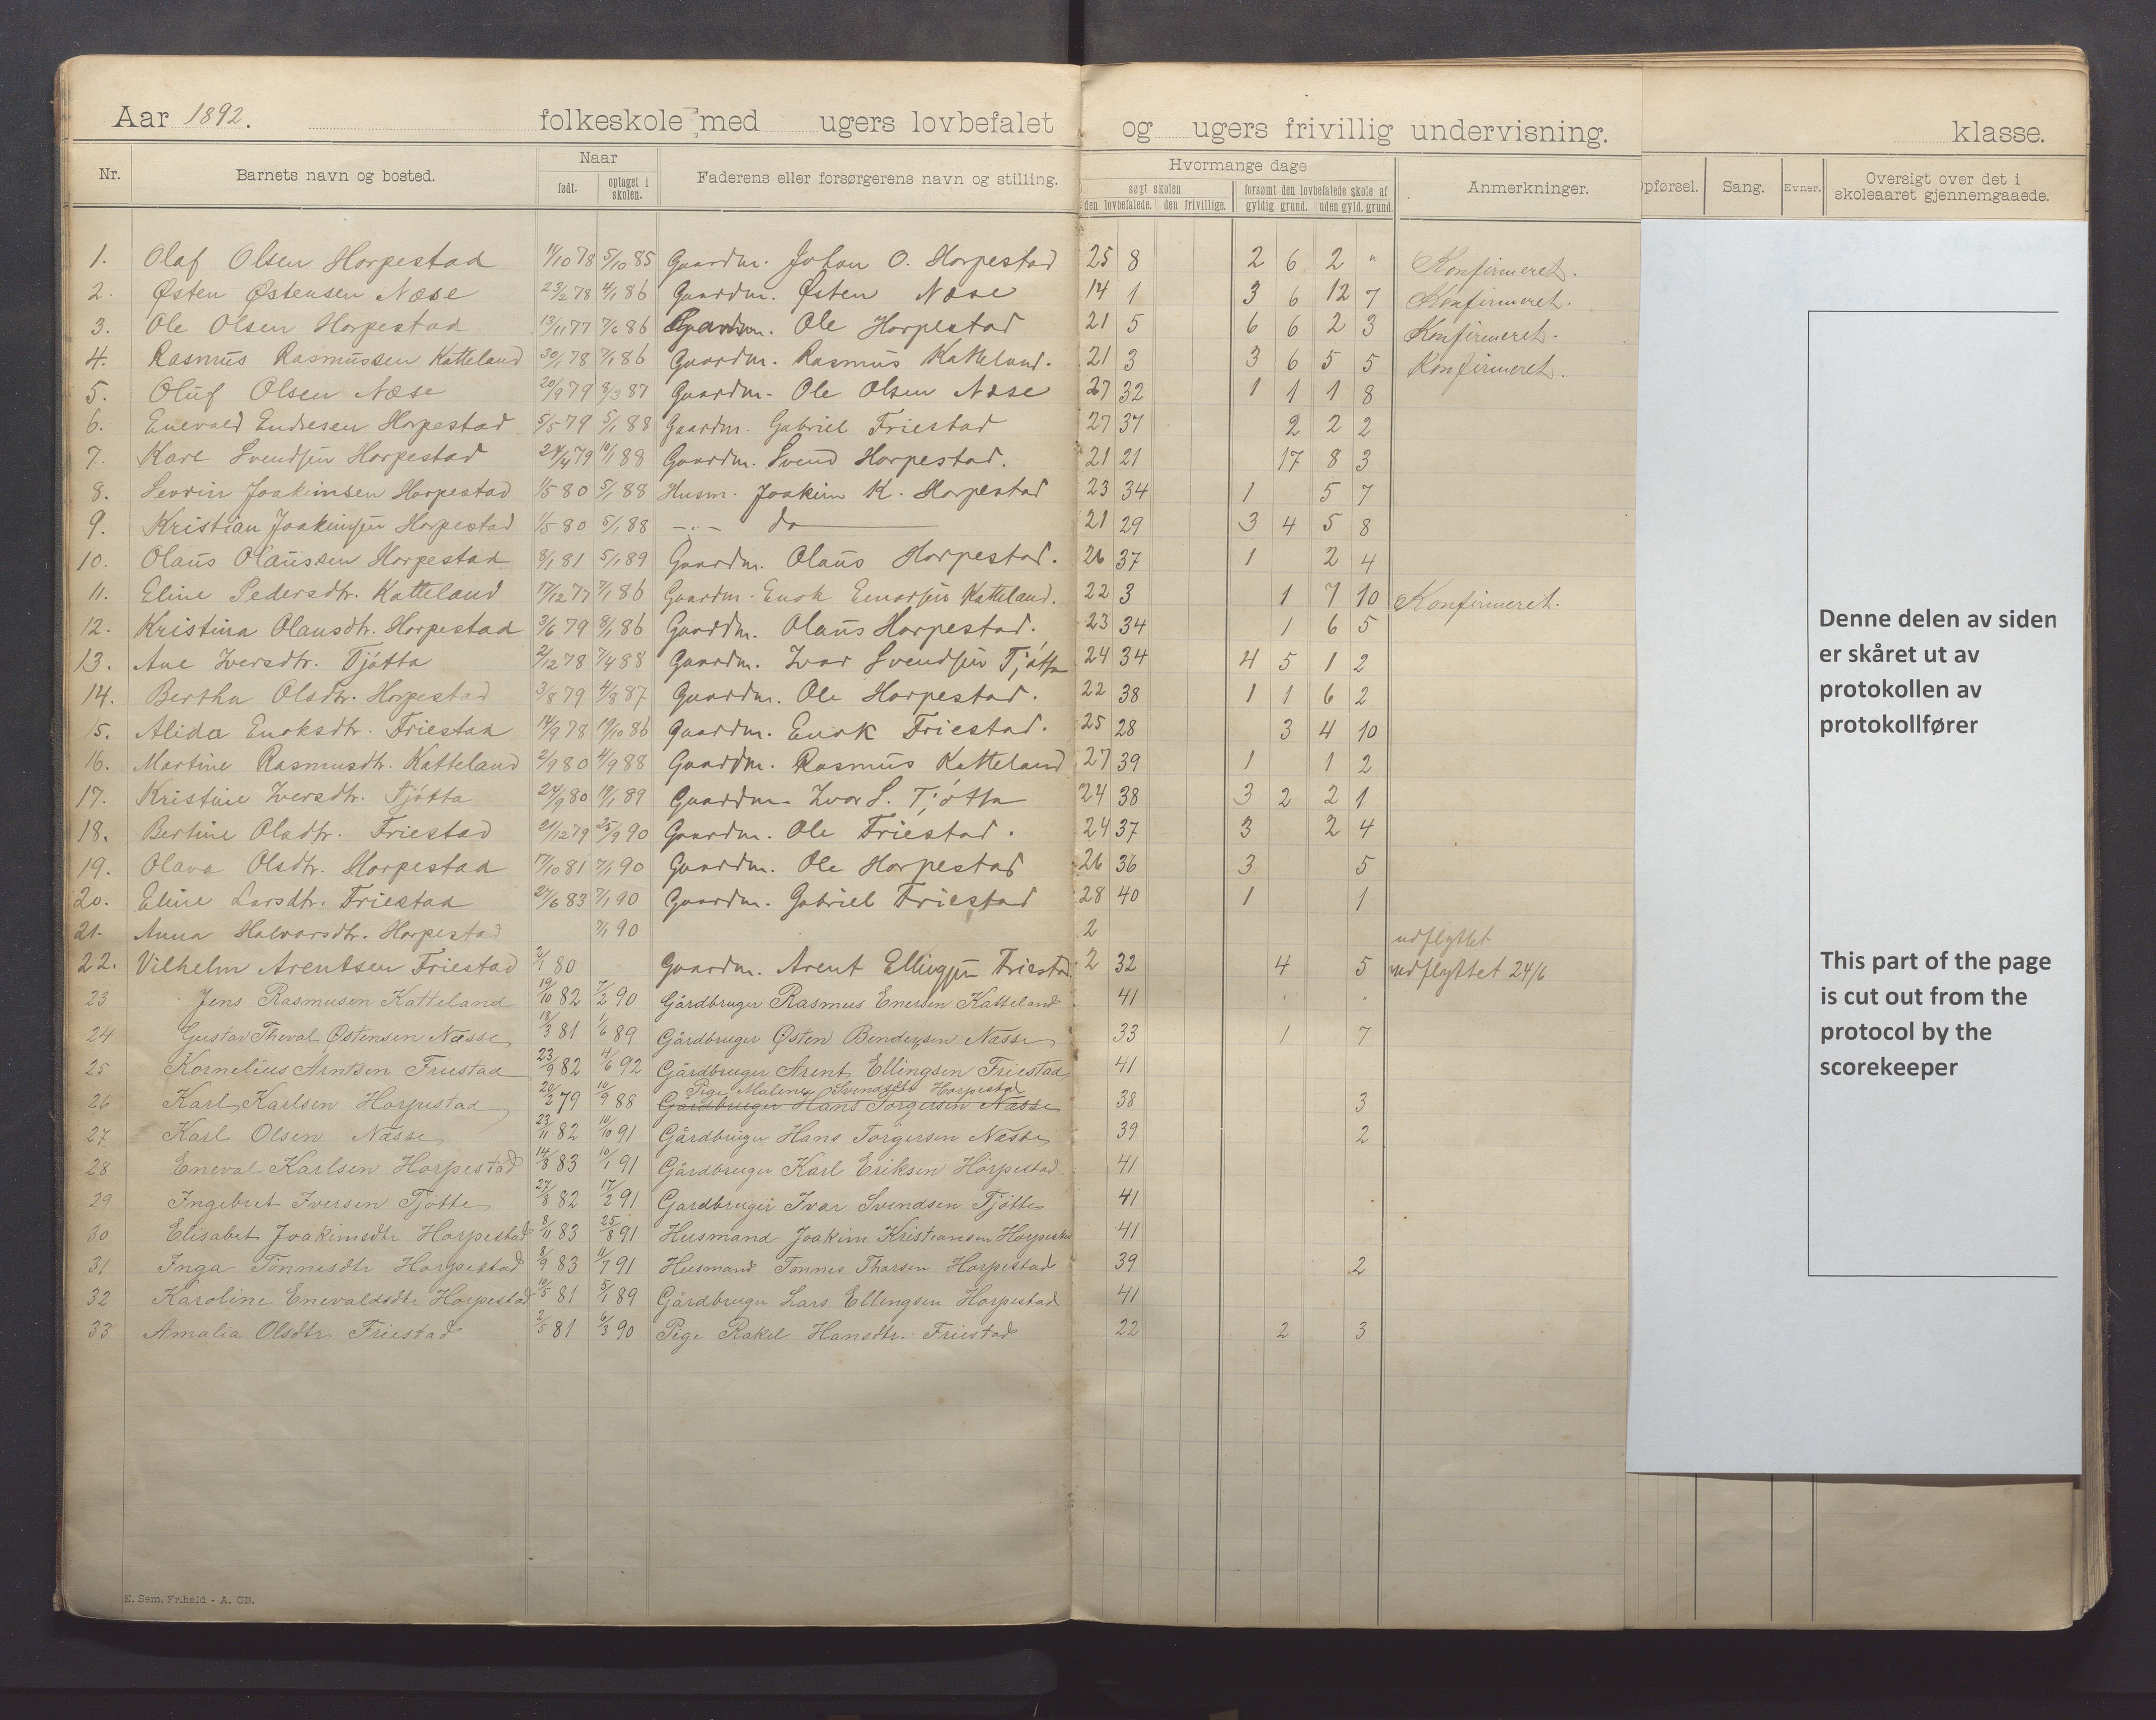 Aar 1892. folkeskole med ugers lovbefalet og ugers frivillig undervisning. klasse.
Nr. Barnets navn og bosted. Naar født. optaget i skolen. Faderens eller forsørgerens navn og stilling. Hvormange dage søgt skolen den lovbefalede. den frivillige. forsømt den lovbefalede skole af gyldig grund. uden gyld. grund. Anmerkninger. Opførsel. Sang. Evner. Oversigt over det i skoleaaret gjennemgaaede.
1. Olaf Olsen Horpestad 11/10 78 5/10 85 Gaardm. Johan O. Horpestad 25 8 2 6 2 " Konfirmeret.
2. Østen Østensen Næse 23/2 78 4/1 86 Gaardm. Østen Næse 14 1 3 6 12 7 Konfirmeret.
3. Ole Olsen Horpestad 13/11 77 7/6 86 Gaardm. Ole Horpestad 21 5 6 6 2 3 Konfirmeret.
4. Rasmus Rasmussen Katteland 30/1 78 7/1 86 Gaardm. Rasmus Katteland. 21 3 3 6 5 5 Konfirmeret.
5. Oluf Olsen Næse 20/9 79 8/3 87 Gaardm. Ole Olsen Næse 27 32 1 1 1 8
6. Enevald Endresen Horpestad 5/5 79 5/1 88 Gaardm. Gabriel Friestad 27 37 2 2 2
7. Karl Svendsen Horpestad 24/4 79 10/1 88 Gaardm. Svend Horpestad. 21 21 17 8 3
8. Sevrin Joakimsen Horpestad 1/5 80 5/1 88 Husm. Joakim K. Horpestad 23 34 1 5 7
9. Kristian Joakimsen Horpestad 1/5 80 5/1 88 -.- do 21 29 3 4 5 8
10. Olaus Olaussen Horpestad 8/1 81 5/1 89 Gaardm. Olaus Horpestad. 26 37 1 2 4
11. Eline Pedersdtr. Katteland 17/12 77 7/1 86 Gaardm. Enok Enarsen Katteland. 22 3 1 7 10 Konfirmeret.
12. Kristina Olausdtr. Horpestad 3/6 79 8/1 86 Gaardm. Olaus Horpestad. 23 34 1 6 5
13. Ane Iversdtr. Tjøtta 2/12 78 7/4 88 Gaardm. Ivar Svendsen Tjøtta 24 34 4 5 1 2
14. Bertha Olsdtr. Horpestad 3/8 79 4/8 87 Gaardm. Ole Horpestad. 22 38 1 1 6 2
15. Alida Enoksdtr. Friestad 14/9 78 19/10 86 Gaardm. Enok Friestad. 25 28 3 4 10
16. Martine Rasmusdtr. Katteland 2/9 80 4/9 88 Gaardm. Rasmus Katteland 27 39 1 1 2
17. Kristine Iversdtr. Tjøtta 24/9 80 19/1 89 Gaardm. Ivar S. Tjøtta 24 38 3 2 2 1
18. Bertine Olsdtr. Friestad 21/12 79 25/9 90 Gaardm. Ole Friestad. 24 37 3 2 4
19. Olava Olsdtr. Horpestad 17/10 81 7/1 90 Gaardm. Ole Horpestad 26 36 3 5
20. Eline Larsdtr. Friestad 27/6 83 7/1 90 Gaardm. Gabriel Friestad 28 40 1 1
21. Anna Halvorsdtr. Horpestad 7/1 90 2 udflyttet
22. Vilhelm Arentsen Friestad 2/1 80 Gaardm. Arent Ellingsen Friestad 2 32 4 5 udflyttet 24/6
23 Jens Rasmusen Katteland 19/10 82 7/2 90 Gårdbruger Rasmus Enersen Katteland 41
24 Gustav Theval Østensen Næsse 18/3 81 1/6 89 Gårdbruger Østen Bendixsen Næsse 33 1 7
25 Kornelius Arntsen Friestad 23/9 82 4/6 92 Gårdbruger Arent Ellingsen Friestad 41
Pige Malene Svendsdtr Horpestad
26 Karl Karlsen Horpestad 20/2 79 10/9 88 Gårdbruger Hans Torgersen Næsse 38 3
27 Karl Olsen Næsse 23/11 82 10/10 91 Gårdbruger Hans Torgersen Næsse 39 2
28 Eneval Karlsen Horpestad 14/8 83 10/1 91 Gårdbruger Karl Eriksen Horpestad 41
29 Ingebret Iversen Tjøtte 27/8 82 17/2 91 Gardbruger Ivar Svendsen Tjøtte 41
30 Elisabet Joakimsdtr Horpestad 8/11 83 25/8 91 Husmand Joakim Kristiansen Horpestad 41
31 Inga Tønnesdtr Horpestad 8/9 83 11/7 91 Husmand Tønnes Thorsen Horpestad 39 2
32 Karoline Enevaldsdtr Horpestad 10/5 81 5/1 89 Gårdbruger Lars Ellingsen Horpestad 41
33 Amalia Olsdtr Friestad 2/5 81 6/3 90 Pige Rakel Hansdtr. Friestad 22 2 3
E. Sem. Fr.hald - A. OB.
Denne delen av siden
er skåret ut av
protokollen av
protokollfører
This part of the page
is cut out from the
protocol by the
scorekeeper